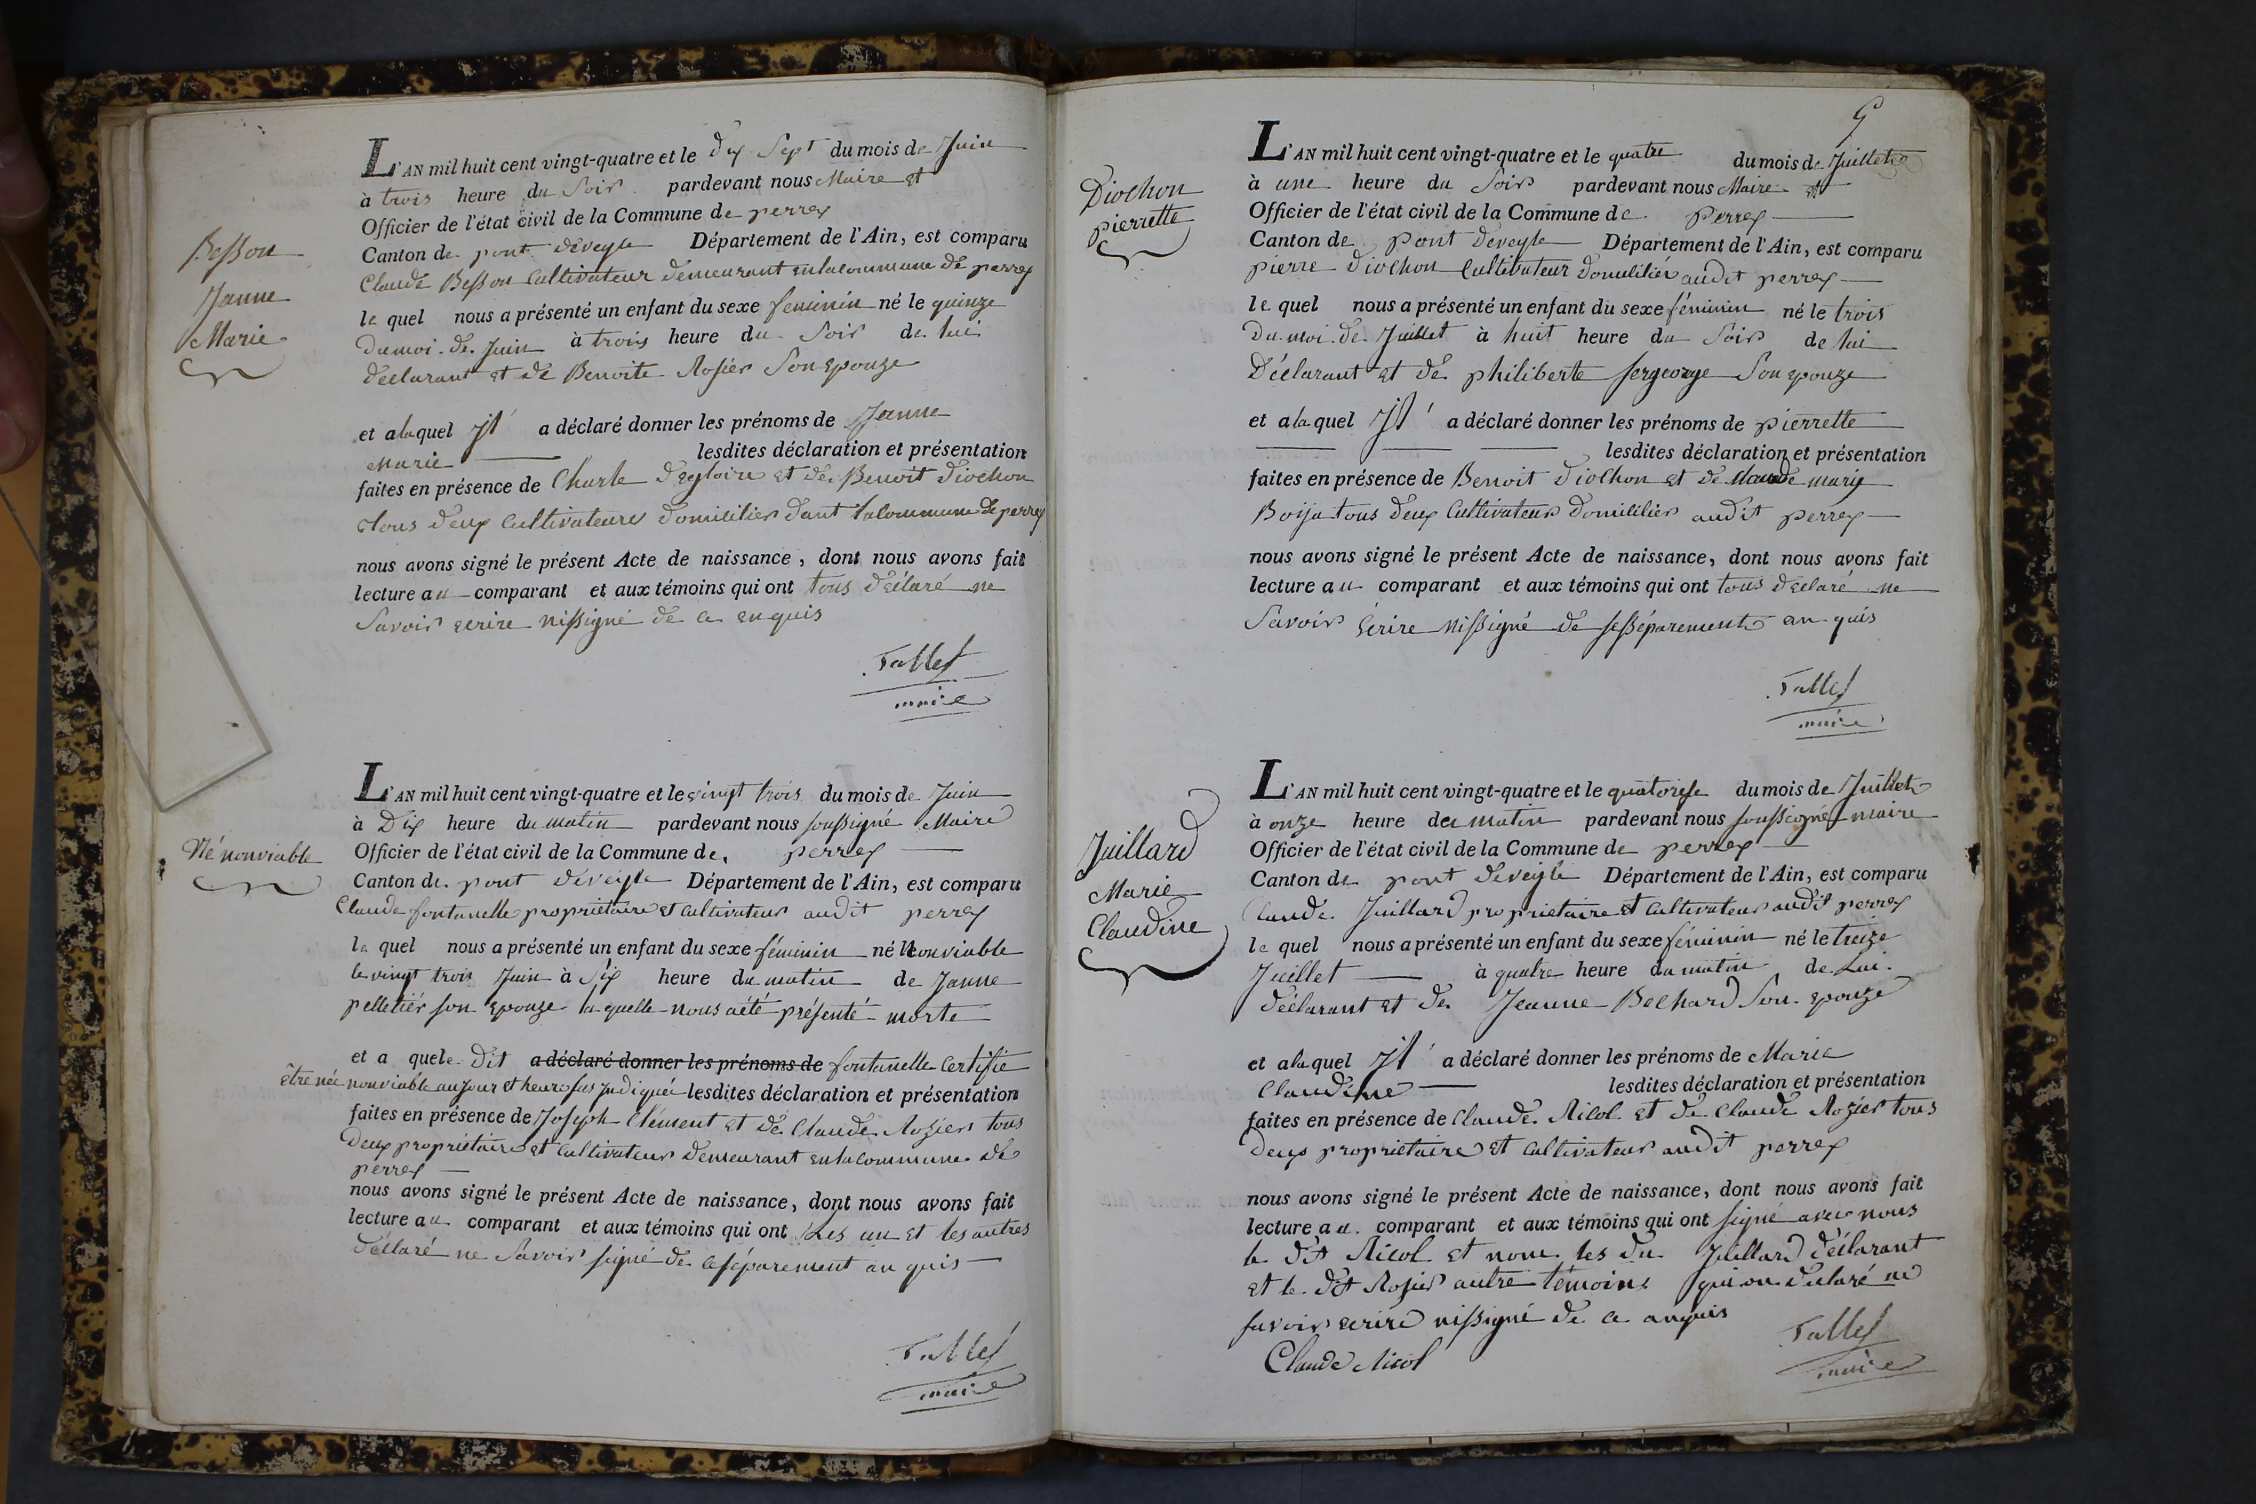 Besson
Janne
Marie
L'AN mil huit cent vingt-quatre et le dix Sept du mois de Juin
à trois heure du Soir pardevant nous Maire et
Officier de l'état civil de la Commune de perrex
Canton de pont deveyle Département de l'Ain, est comparu
Claude Besson Cultivateur demeurant en la commune de perrex
le quel nous a présenté un enfant du sexe feminin né le quinze
du moi de Juin à trois heure du Soir de lui
déclarant et de Benoite Rosier Son Epouze
et a laquel Jl a déclaré donner les prénoms de Janne
Marie lesdites déclaration et présentation
faites en présence de Charle Degloire et de Benoit Diochon
tous deux Cultivateurs domicilier dant la commune de perrex
nous avons signé le présent Acte de naissance, dont nous avons fait
lecture au comparant et aux témoins qui ont tous déclaré ne
Savoir ecrire nissigné de ce enquis
Tallet
maire
Né nonviable
L'AN mil huit cent vingt-quatre et le vingt trois du mois de Juin
à Dix heure du matin pardevant nous soussigné Maire
Officier de l'état civil de la Commune de perrex
Canton de pont deveyle Département de l'Ain, est comparu
Claude fontanelle proprietaire et cultivateur audit perrex
le quel nous a présenté un enfant du sexe féminin né nonviable
le vingt trois Juin à Six heure du matin de Janne
pelletier son Epouze la quelle nous a été présenté morte
et a quele Dit a déclaré donner les prénoms de fontanelle Certifie
être née nonviable au jour et heure sus jndiquée lesdites déclaration et présentation
faites en présence de Joseph Clément et de Claude Rozier tous
Deux propriétaire et Cultivateur demeurant en la commune de
perrex
nous avons signé le présent Acte de naissance, dont nous avons fait
lecture au comparant et aux témoins qui ont Les un et les autres
déclaré ne Savoir signé de ce séparement an quis
Tallet
maire
G
Diochon
pierrette
L'AN mil huit cent vingt-quatre et le quatre du mois de Juillet
à une heure du Soir pardevant nous Maire et
Officier de l'état civil de la Commune de Perrex
Canton de Pont deveyle Département de l'Ain, est comparu
pierre Diochon Cultivateur domicilier audit perrex
le quel nous a présenté un enfant du sexe féminin né le trois
Du moi de Juillet à huit heure du Soir de lui
Déclarant et de philiberte fergeorge Son epouze
et a laquel Jl a déclaré donner les prénoms de pierrette
lesdites déclaration et présentation
faites en présence de Benoit Diochon et de Claude mary
Boyja tous deux Cultivateur Domicilier audit perrex
nous avons signé le présent Acte de naissance, dont nous avons fait
lecture au comparant et aux témoins qui ont tous déclaré ne
Savoir écrire nissigné de sesséparement an quis
Tallet
maire
Juillard
Marie
Claudine
L'AN mil huit cent vingt-quatre et le quatorse du mois de Juillet
à onze heure de matin pardevant nous soussigné maire
Officier de l'état civil de la Commune de perrex
Canton de pont deveyle Département de l'Ain, est comparu
Claude Juillard proprietaire et cultivateur audit perrex
le quel nous a présenté un enfant du sexe féminin né le treize
Juillet à quatre heure du matin de Lui
déclarant et de Jeanne Bochard Son epouze
et a laquel Jl a déclaré donner les prénoms de Marie
Claudine lesdites déclaration et présentation
faites en présence de Claude Nicol et de Claude Rozier tous
Deux proprietaire et cultivateur audit perrex
nous avons signé le présent Acte de naissance, dont nous avons fait
lecture au comparant et aux témoins qui ont signé avec nous
le dit Nicol et nom les du Juillard déclarant
et le dit Rosier autre temoins qui on déclaré ne
savoir ecrire nissigné de ce anquis
Claude Nicol
Tallet
maire